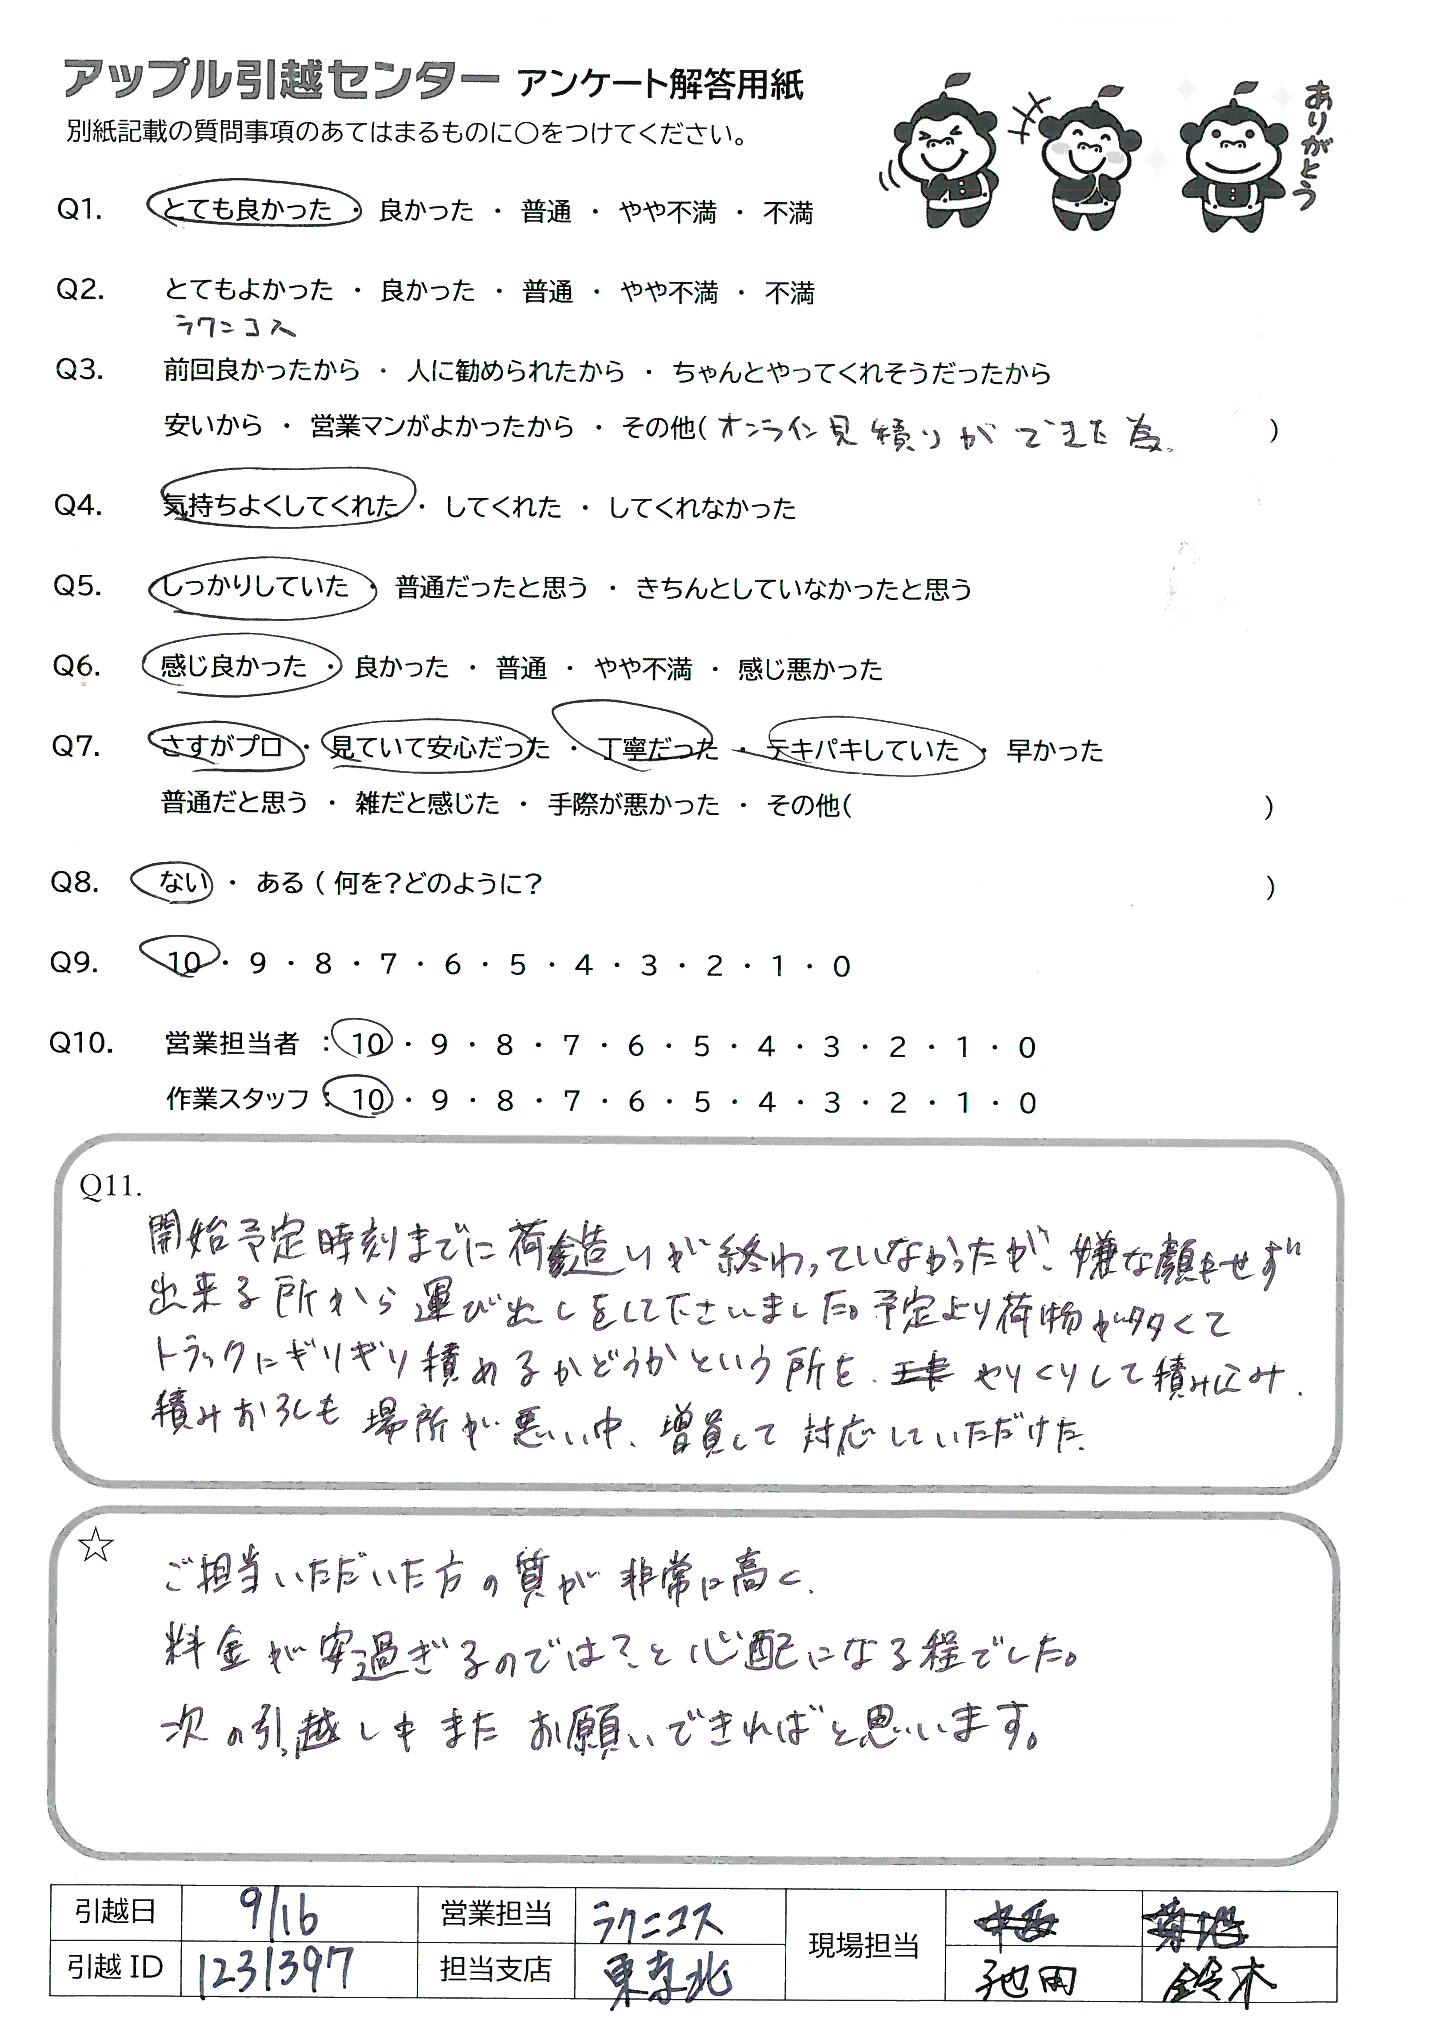 アップル引越センター アンケート解答用紙
別紙記載の質問事項のあてはまるものに○をつけてください。
ありがとう
Q1. とても良かった ・ 良かった ・ 普通 ・ やや不満 ・ 不満
Q2. とてもよかった ・ 良かった ・ 普通 ・ やや不満 ・ 不満
ラクニコス
Q3. 前回良かったから ・ 人に勧められたから ・ ちゃんとやってくれそうだったから
安いから ・ 営業マンがよかったから ・ その他( オンライン見積りができた為。 )
Q4. 気持ちよくしてくれた ・ してくれた ・ してくれなかった
Q5. しっかりしていた ・ 普通だったと思う ・ きちんとしていなかったと思う
Q6. 感じ良かった ・ 良かった ・ 普通 ・ やや不満 ・ 感じ悪かった
Q7. さすがプロ ・ 見ていて安心だった ・ 丁寧だった ・ テキパキしていた ・ 早かった
普通だと思う ・ 雑だと感じた ・ 手際が悪かった ・ その他( )
Q8. ない ・ ある ( 何を?どのように? )
Q9. 10 ・ 9 ・ 8 ・ 7 ・ 6 ・ 5 ・ 4 ・ 3 ・ 2 ・ 1 ・ 0
Q10. 営業担当者 : 10 ・ 9 ・ 8 ・ 7 ・ 6 ・ 5 ・ 4 ・ 3 ・ 2 ・ 1 ・ 0
作業スタッフ : 10 ・ 9 ・ 8 ・ 7 ・ 6 ・ 5 ・ 4 ・ 3 ・ 2 ・ 1 ・ 0
Q11.
開始予定時刻までに荷造りが終わっていなかったが、嫌な顔もせず
出来る所から運び出しをして下さいました。予定より荷物が多くて
トラックにギリギリ積めるかどうかという所を、やりくりして積み込み、
積みおろしも場所が悪い中、増員して対応していただけた。
☆
ご担当いただいた方の質が非常に高く、
料金が安過ぎるのでは?と心配になる程でした。
次の引越しもまたお願いできればと思います。
引越日 9/16 営業担当 ラクニコス 現場担当 中西 菊地
引越ID 1231397 担当支店 東京北 池田 鈴木